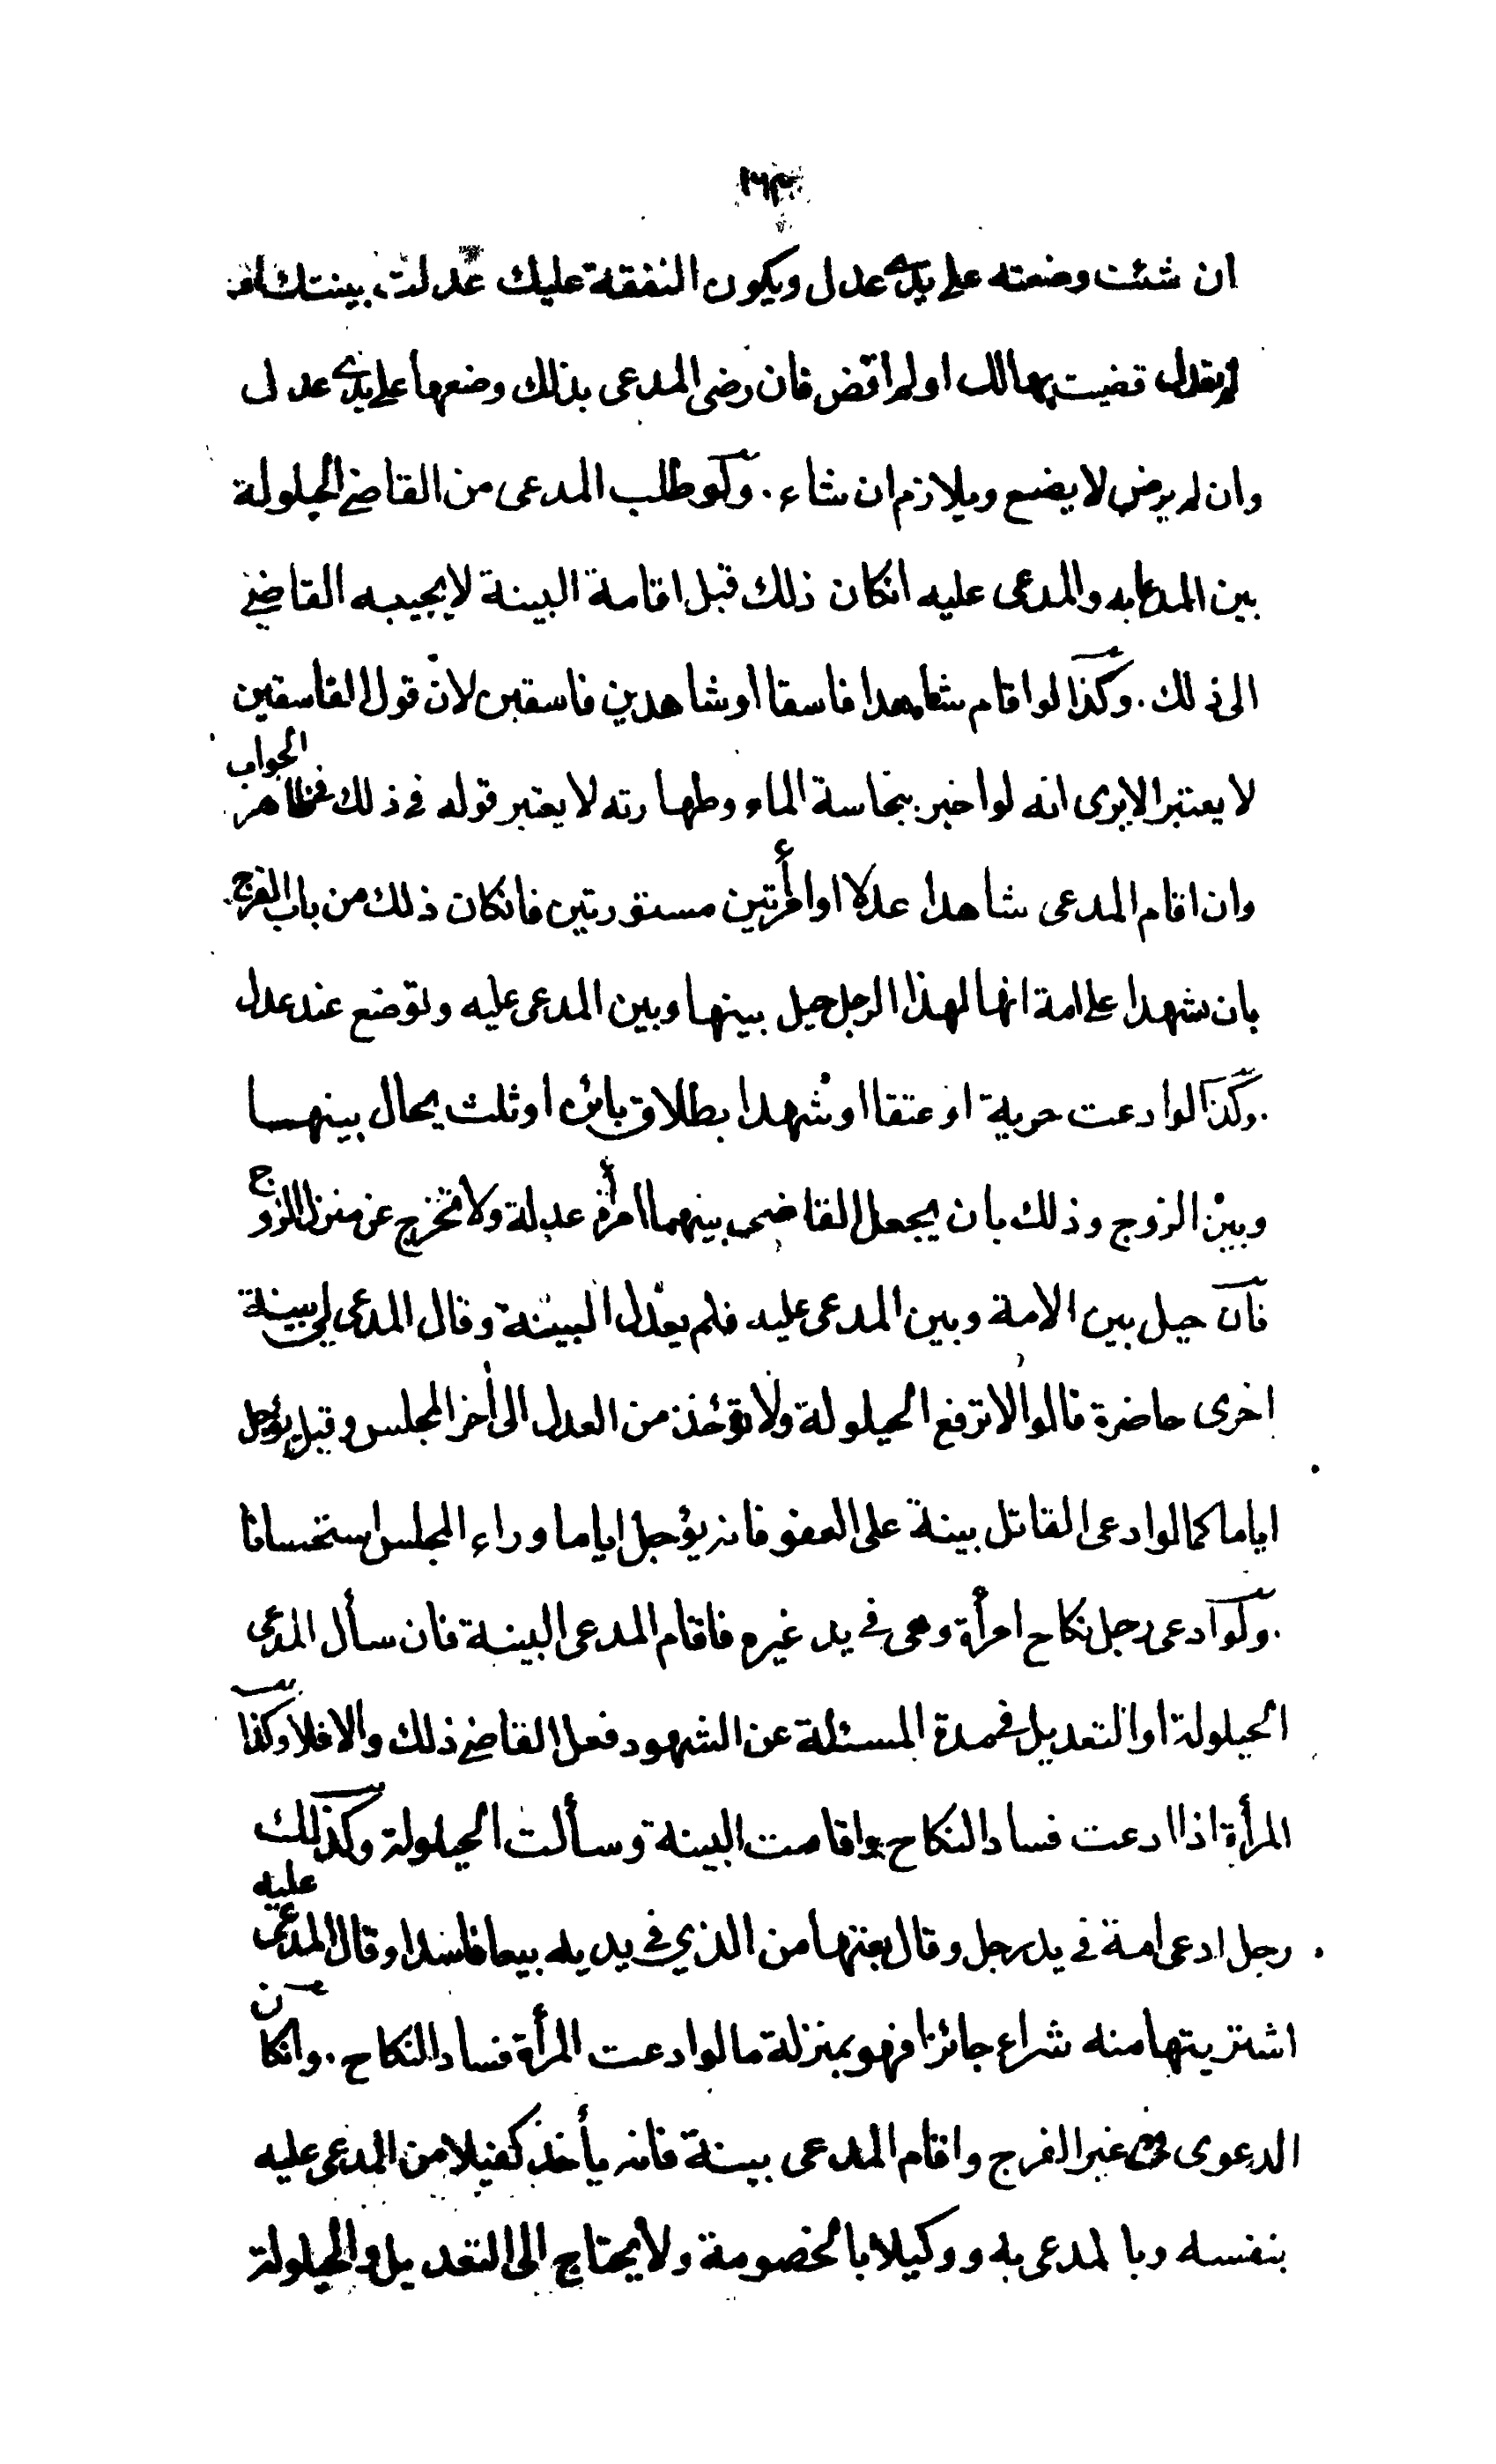 ١٦٣
ان شئت وضعته على يدي عدل ويكون النفقة عليك عدلت بينتك او
لم تعدل قضيت بها لك او لم اقض فان رضى المدعى بذلك وضعها على يدي عدل
وان لم يرض لا يضع ويلازم ان شاء . ولو طلب المدعى من القاضي الحيلولة
بين المدعا به والمدعى عليه انكان ذلك قبل اقامة البينة لا يجيبه القاضي
الى ذلك . وكذا لو اقام شاهدا فاسقا او شاهدين فاسقين لانّ قول الفاسقين
لا يعتبر الا يرى انه لو اخبر بنجاسة الماء وطهارته لا يعتبر قوله في ذلك في ظاهر الجواب
وان اقام المدعى شاهدا عدلا او امرأتين مستورتين فانكان ذلك من باب الفرج
بان شهدا على امة انها لهذا الرجل حيل بينها وبين المدعى عليه وتوضع عند عدل
. وكذا لو ادعت حرية او عتقا او شهدا بطلاق بائن او ثلث يحال بينهما
وبين الزوج وذلك بان يجعل القاضى بينهما امرأة عدلة ولا تخرج عن منزل الزوج
فان حيل بين الامة وبين المدعى عليه فلم يعدل البينة وقال المدعى لي بينة
اخرى حاضرة قالوا لا ترفع الحيلولة ولا تؤخذ من العدل الى أخر المجلس وقيل يؤجل
اياما كما لو ادعى القاتل بينة على العفو فانه يؤجل اياما وراء المجلس استحسانا
. ولو ادعى رجل نكاح امرأة وهى في يد غيره فاقام المدعى البينة فان سأل المدعى
الحيلولة او التعديل في مدة المسئلة عن الشهود فعل القاضي ذلك والا فلا وكذا
المرأة اذا ادعت فساد النكاح واقامت البينة وسألت الحيلولة وكذلك
رجل ادعى امة في يد رجل وقال بعتها من الذي في يديه بيعا فاسدا وقال المدعى عليه
اشتريتها منه شراء جائزا فهو بمنزلة ما لو ادعت المرأة فساد النكاح . وانكان
الدعوى في غير الفرج واقام المدعى بينة فانه يأخذ كفيلا من المدعى عليه
بنفسه وبالمدعى به ووكيلا بالخصومة ولا يحتاج الى التعديل والحيلولة